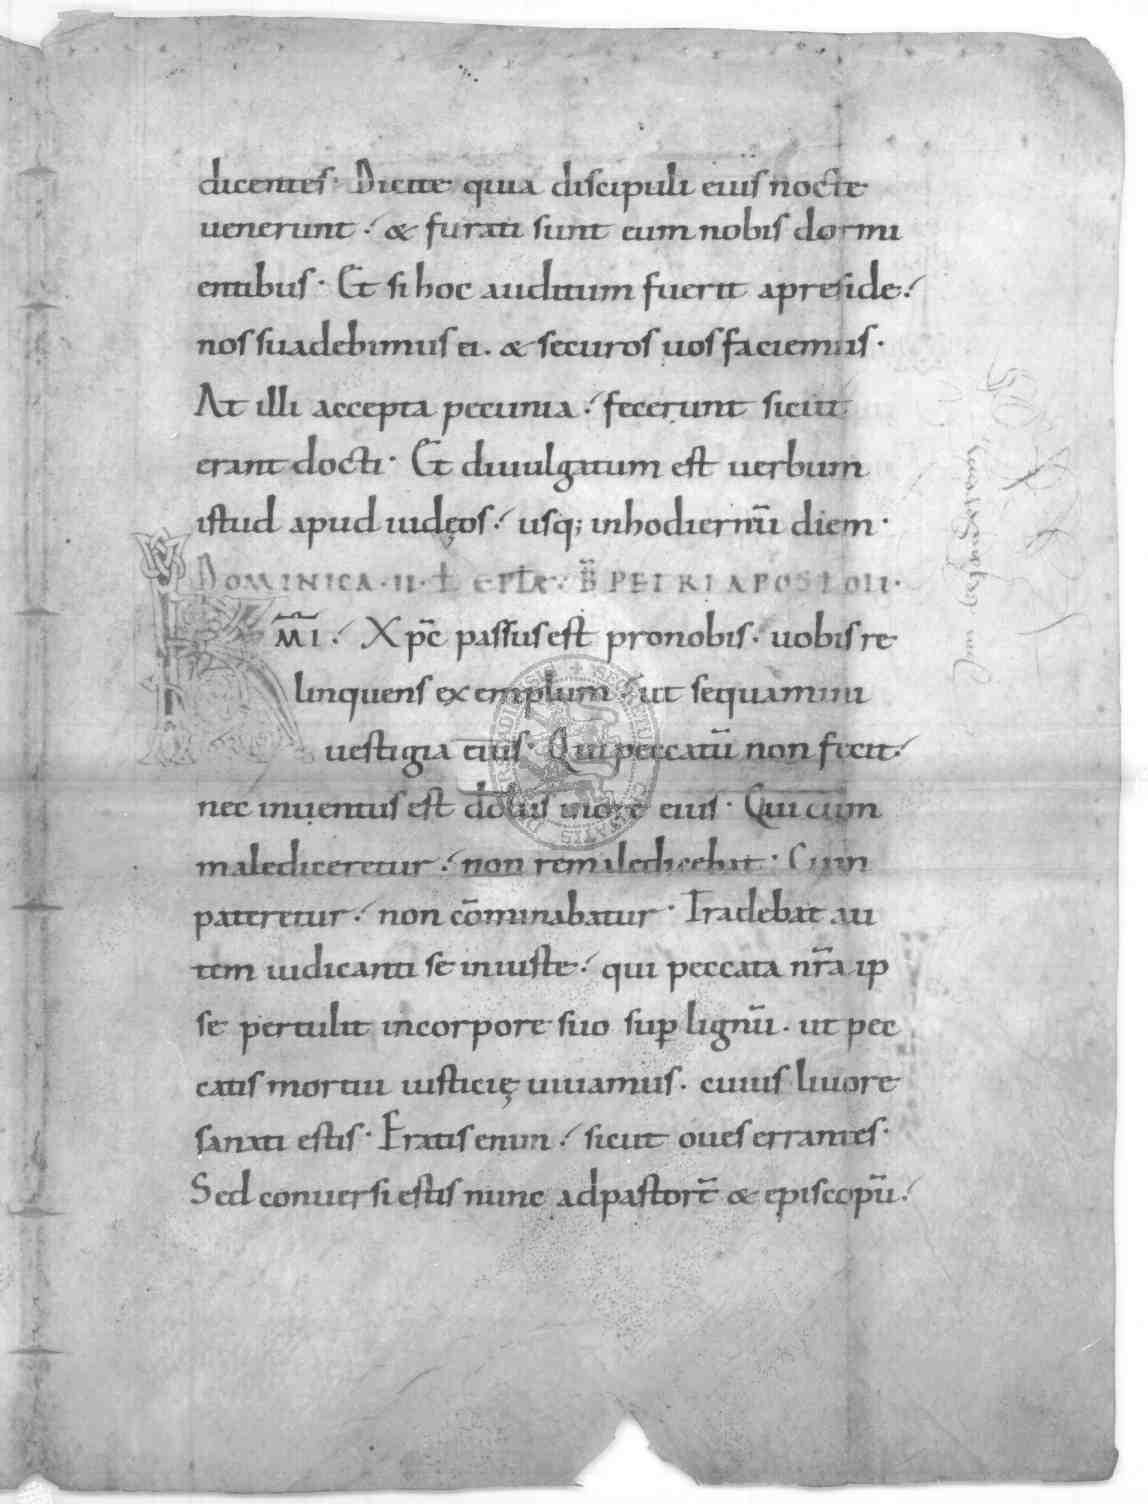 dicentes · Dicite quia discipuli eius nocte
uenerunt ·/ & furati sunt eum nobis dormi
entibus · Et si hoc auditum fuerit apreside ·/
nos suadebimus ei . & securos uos faciemus ·
At illi accepta pecunia ·/ fecerunt sicut
erant docti · Et diuulgatum est uerbum
istud apud iudęos ·/ usq; inhodiernū diem ·
DOMINICA · II · PETRI APOSTOLI ·
K M̅I ·/ Xpc̄ passus est pronobis · uobis re
linquens exemplum ·/ ut sequamini
uestigia eius · Qui peccatū non fecit ·/
nec inuentus est dolus inore eius · Qui cum
malediceretur ·/ non remaledicebat · Cum
pateretur ·/ non cōminabatur · Tradebat au
tem iudicanti se iniuste ·/ qui peccata nr̄a ip
se pertulit incorpore suo sup lignū . ut pec
catis mortui iusticię uiuamus . cuius liuore
sanati estis · Eratis enim ·/ sicut oues errantes ·
Sed conuersi estis nunc adpastorē & episcopū ·/